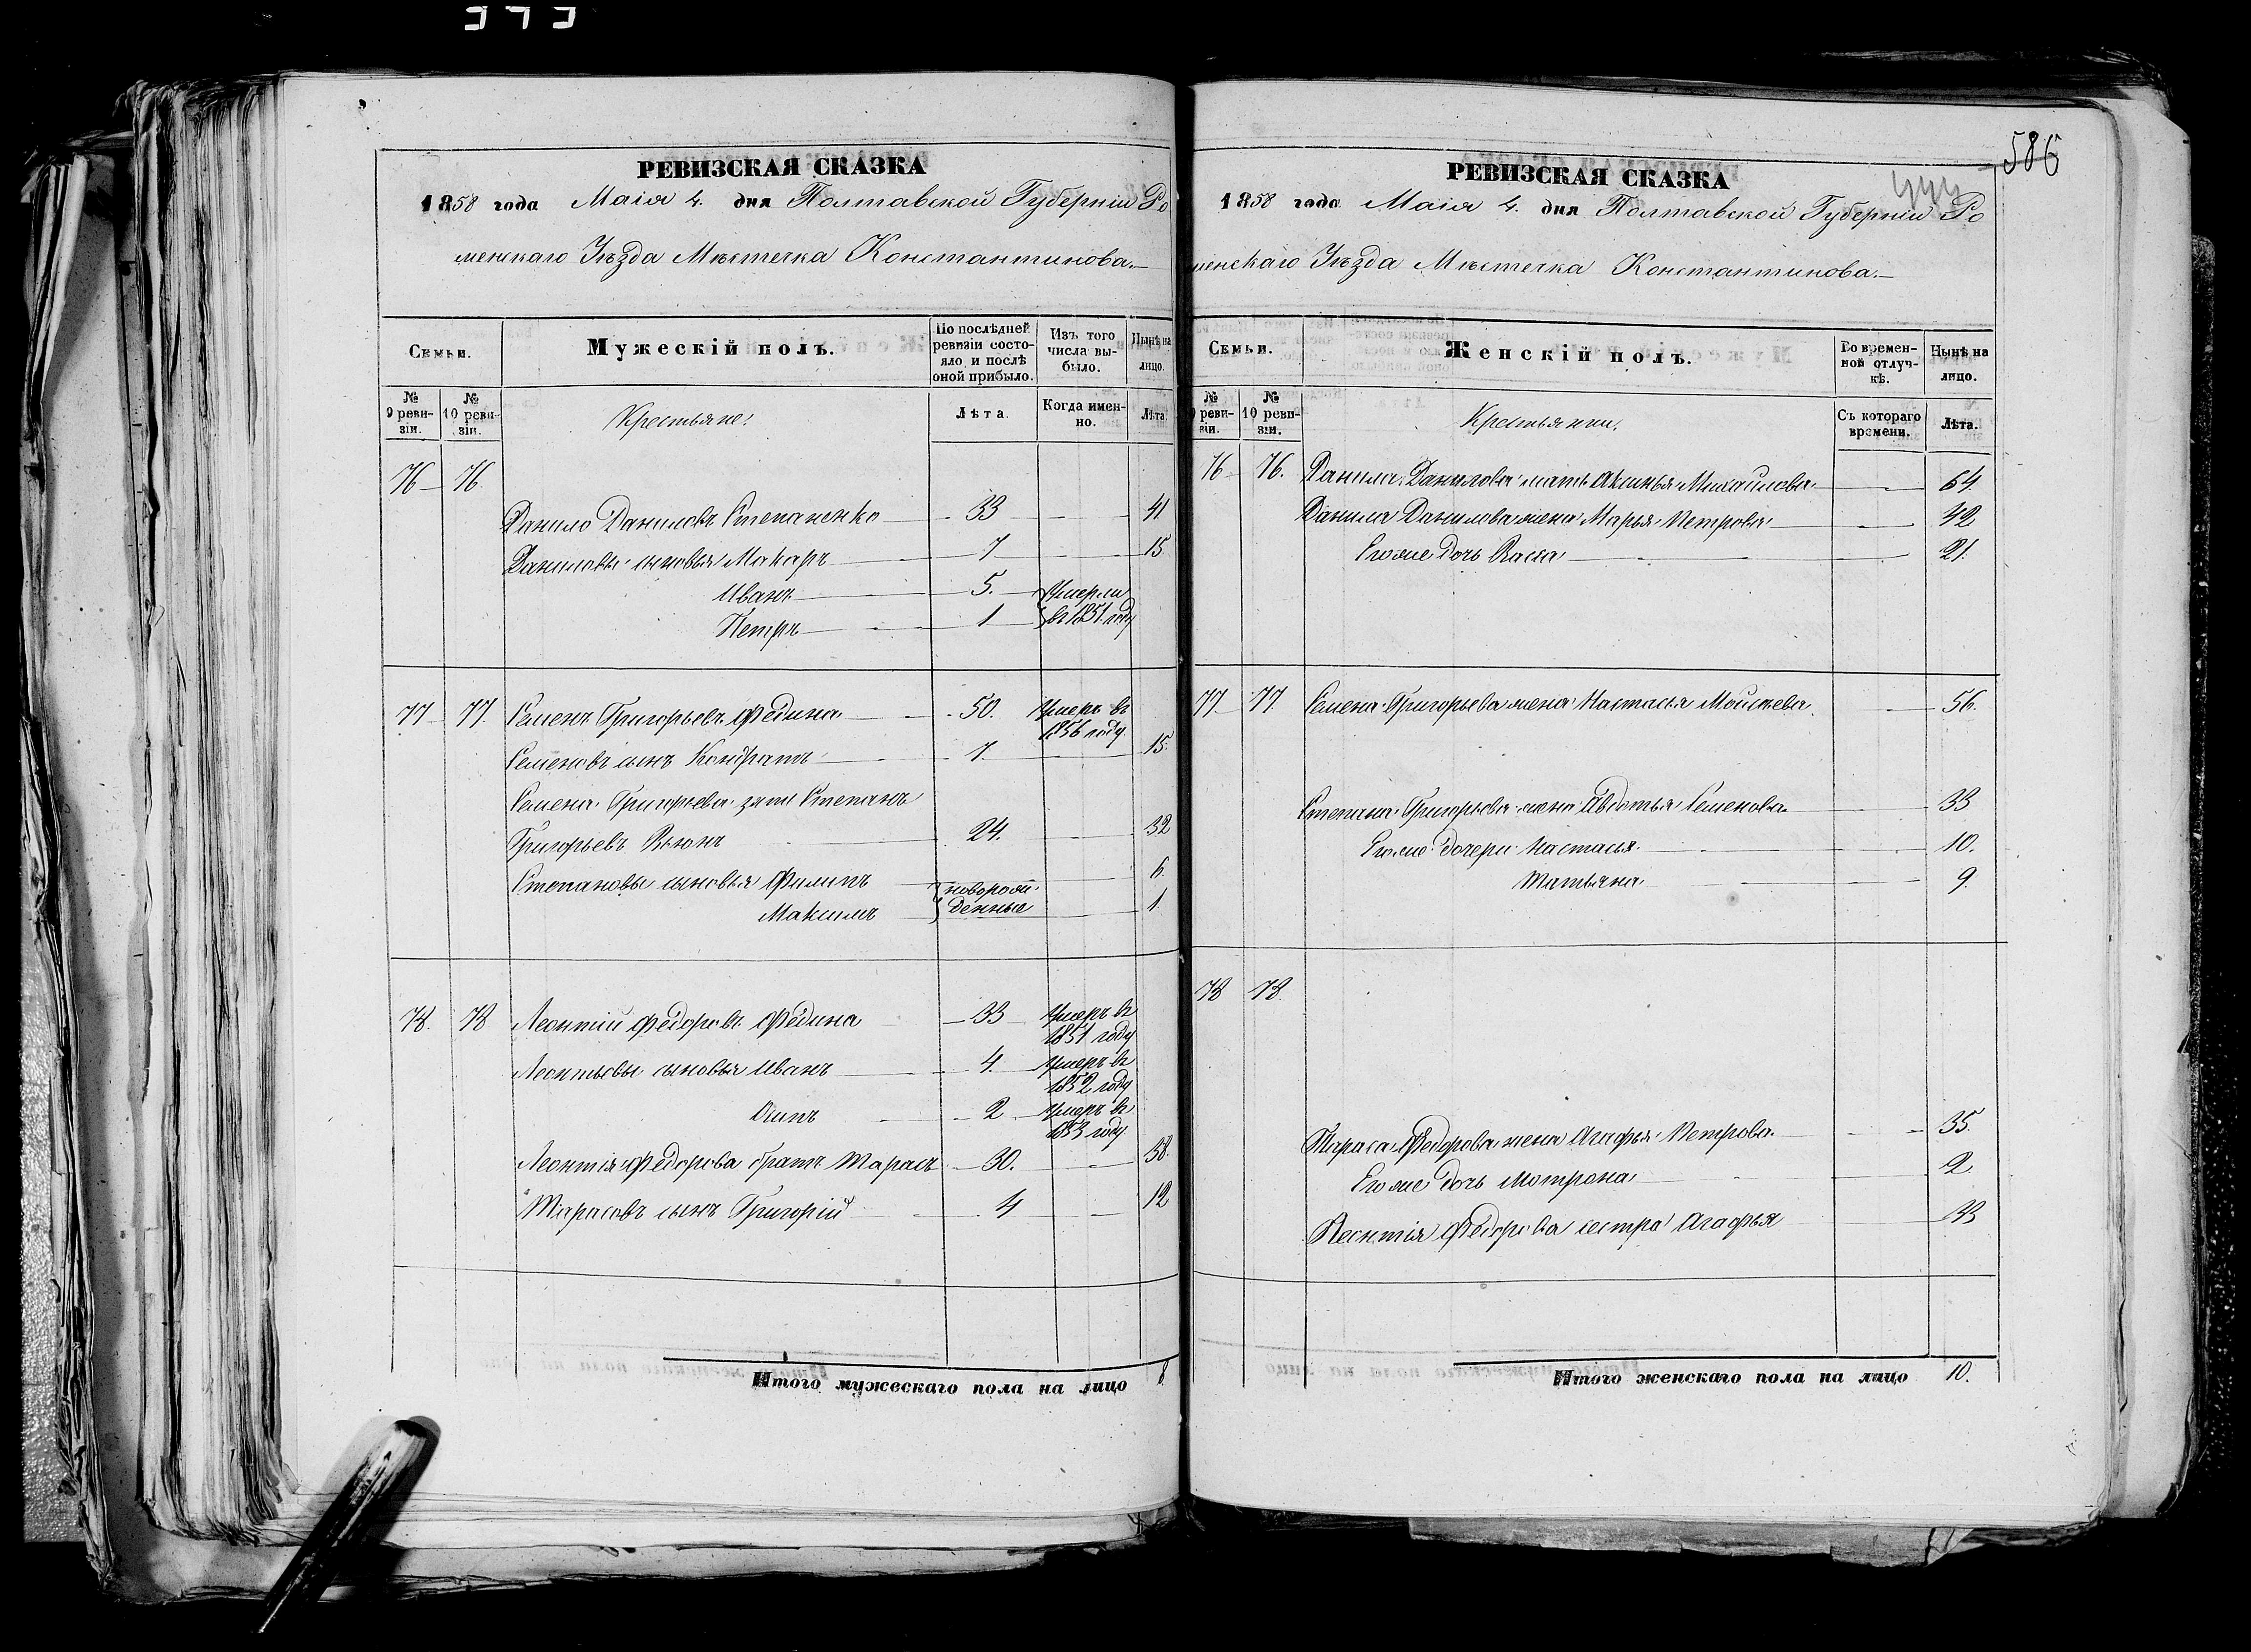 РЕВИЗСКАЯ СКАЗКА
1858 года Маія 4. дня Полтавской Губерніи Ро
менскаго Уѣзда Мѣстечка Константинова.
Семьи.
Мужескій полъ.
По послѣдней ревизіи состояло и послѣ оной прибыло.
Изъ того числа выбыло.
Нынѣ на лицо.
№ 9 ревизіи.
№ 10 ревизіи.
Крестьяне:
Лѣта.
Когда именно.
Лѣта.
76 76
Данило Даниловъ Степаненко 33 41
Даниловы сыновья Макаръ 7 15
Иванъ 5. Умерли
Петръ 1 въ 1851 году
77 77. Семенъ Григорьевъ Федина 50. Умеръ въ
1856 году
Семеновъ сынъ Кондратъ 7. 15.
Семена Григорьева зять Степанъ
Григорьевъ Вьюнъ 24. 32
Степановы сыновья Филипъ новорож 6
Максимъ денные 1
78. 78 Леонтій Федоровъ Федина 33 Умеръ въ
1851 году
Леонтьевы сыновья Иванъ 4. Умеръ въ
1852 году
Осипъ 2 Умеръ въ
1853 году
Леонтія Федорова братъ Тарасъ 30. 38.
Тарасовъ сынъ Григорій 4 12
Итого мужескаго пола на лицо 8.
586
РЕВИЗСКАЯ СКАЗКА
1858 года Маія 4. дня Полтавской Губерніи Ро
менскаго Уѣзда Мѣстечка Константинова.
Семьи.
Женскій полъ.
Во временной отлучкѣ.
Нынѣ на лицо.
№ 9 ревизіи.
№ 10 ревизіи.
Крестьянки.
Съ котораго времени.
Лѣта.
76 76. Данила Данилова мать Акинья Михайлова 64.
Данила Данилова жена Марья Петрова 42
Его же дочь Васса 21.
77. 77. Семена Григорьева жена Настасья Моисѣева 56.
Степана Григорьева жена Авдотья Семенова 33
Его же дочери Настасья 10.
Татьяна 9.
78 78.
Тараса Федорова жена Агафья Петрова 35.
Его же дочь Мотрона 2
Леонтія Федорова сестра Агафья 33
Итого женскаго пола на лицо 10.